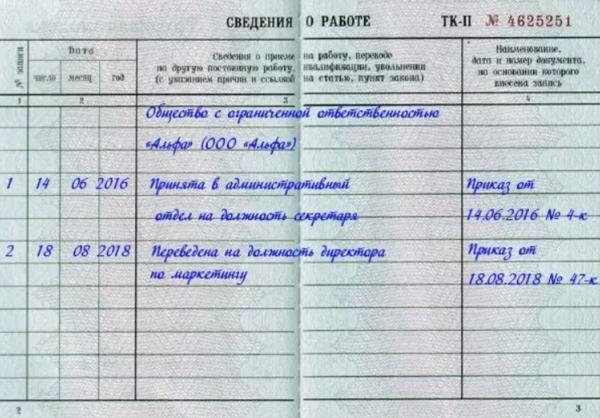 СВЕДЕНИЯ О РАБОТЕ ТК-II № 4625251
№ записи
Дата
число месяц год
Сведения о приеме на работу, переводе
на другую постоянную работу, квалификации, увольнении
(с указанием причин и ссылкой на статью, пункт закона)
Наименование,
дата и номер документа,
на основании которого
внесена запись
1 2 3 4
Общество с ограниченной ответственностью
«Альфа» (ООО «Альфа»)
1 14 06 2016 Принята в административный Приказ от
отдел на должность секретаря 14.06.2016 № 4-к
2 18 08 2018 Переведена на должность директора Приказ от
по маркетингу 18.08.2018 № 47-к
2 3